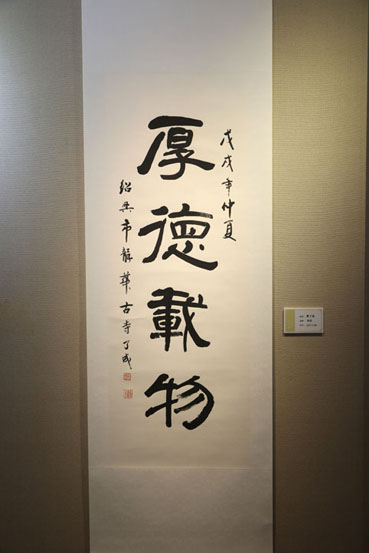 戊戌年仲夏
厚德載物
绍兴市龍華古寺了成